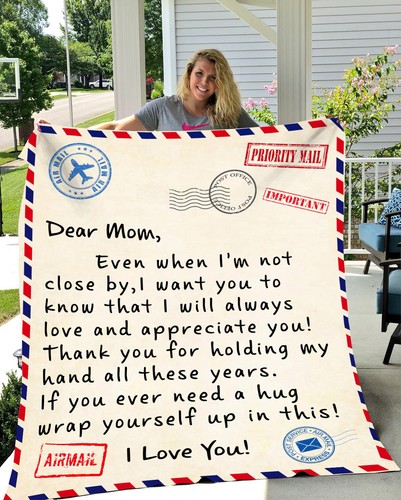 AIR MAIL
AIR MAIL
PRIORITY MAIL
POST OFFICE
POST OFFICE
IMPORTANT
Dear Mom,
Even when I'm not
close by,I want you to
know that I will always
love and appreciate you!
Thank you for holding my
hand all these years.
If you ever need a hug
wrap yourself up in this!
I Love You!
AIRMAIL
POST SERVICE · AIR MAIL
· EXPRESS ·